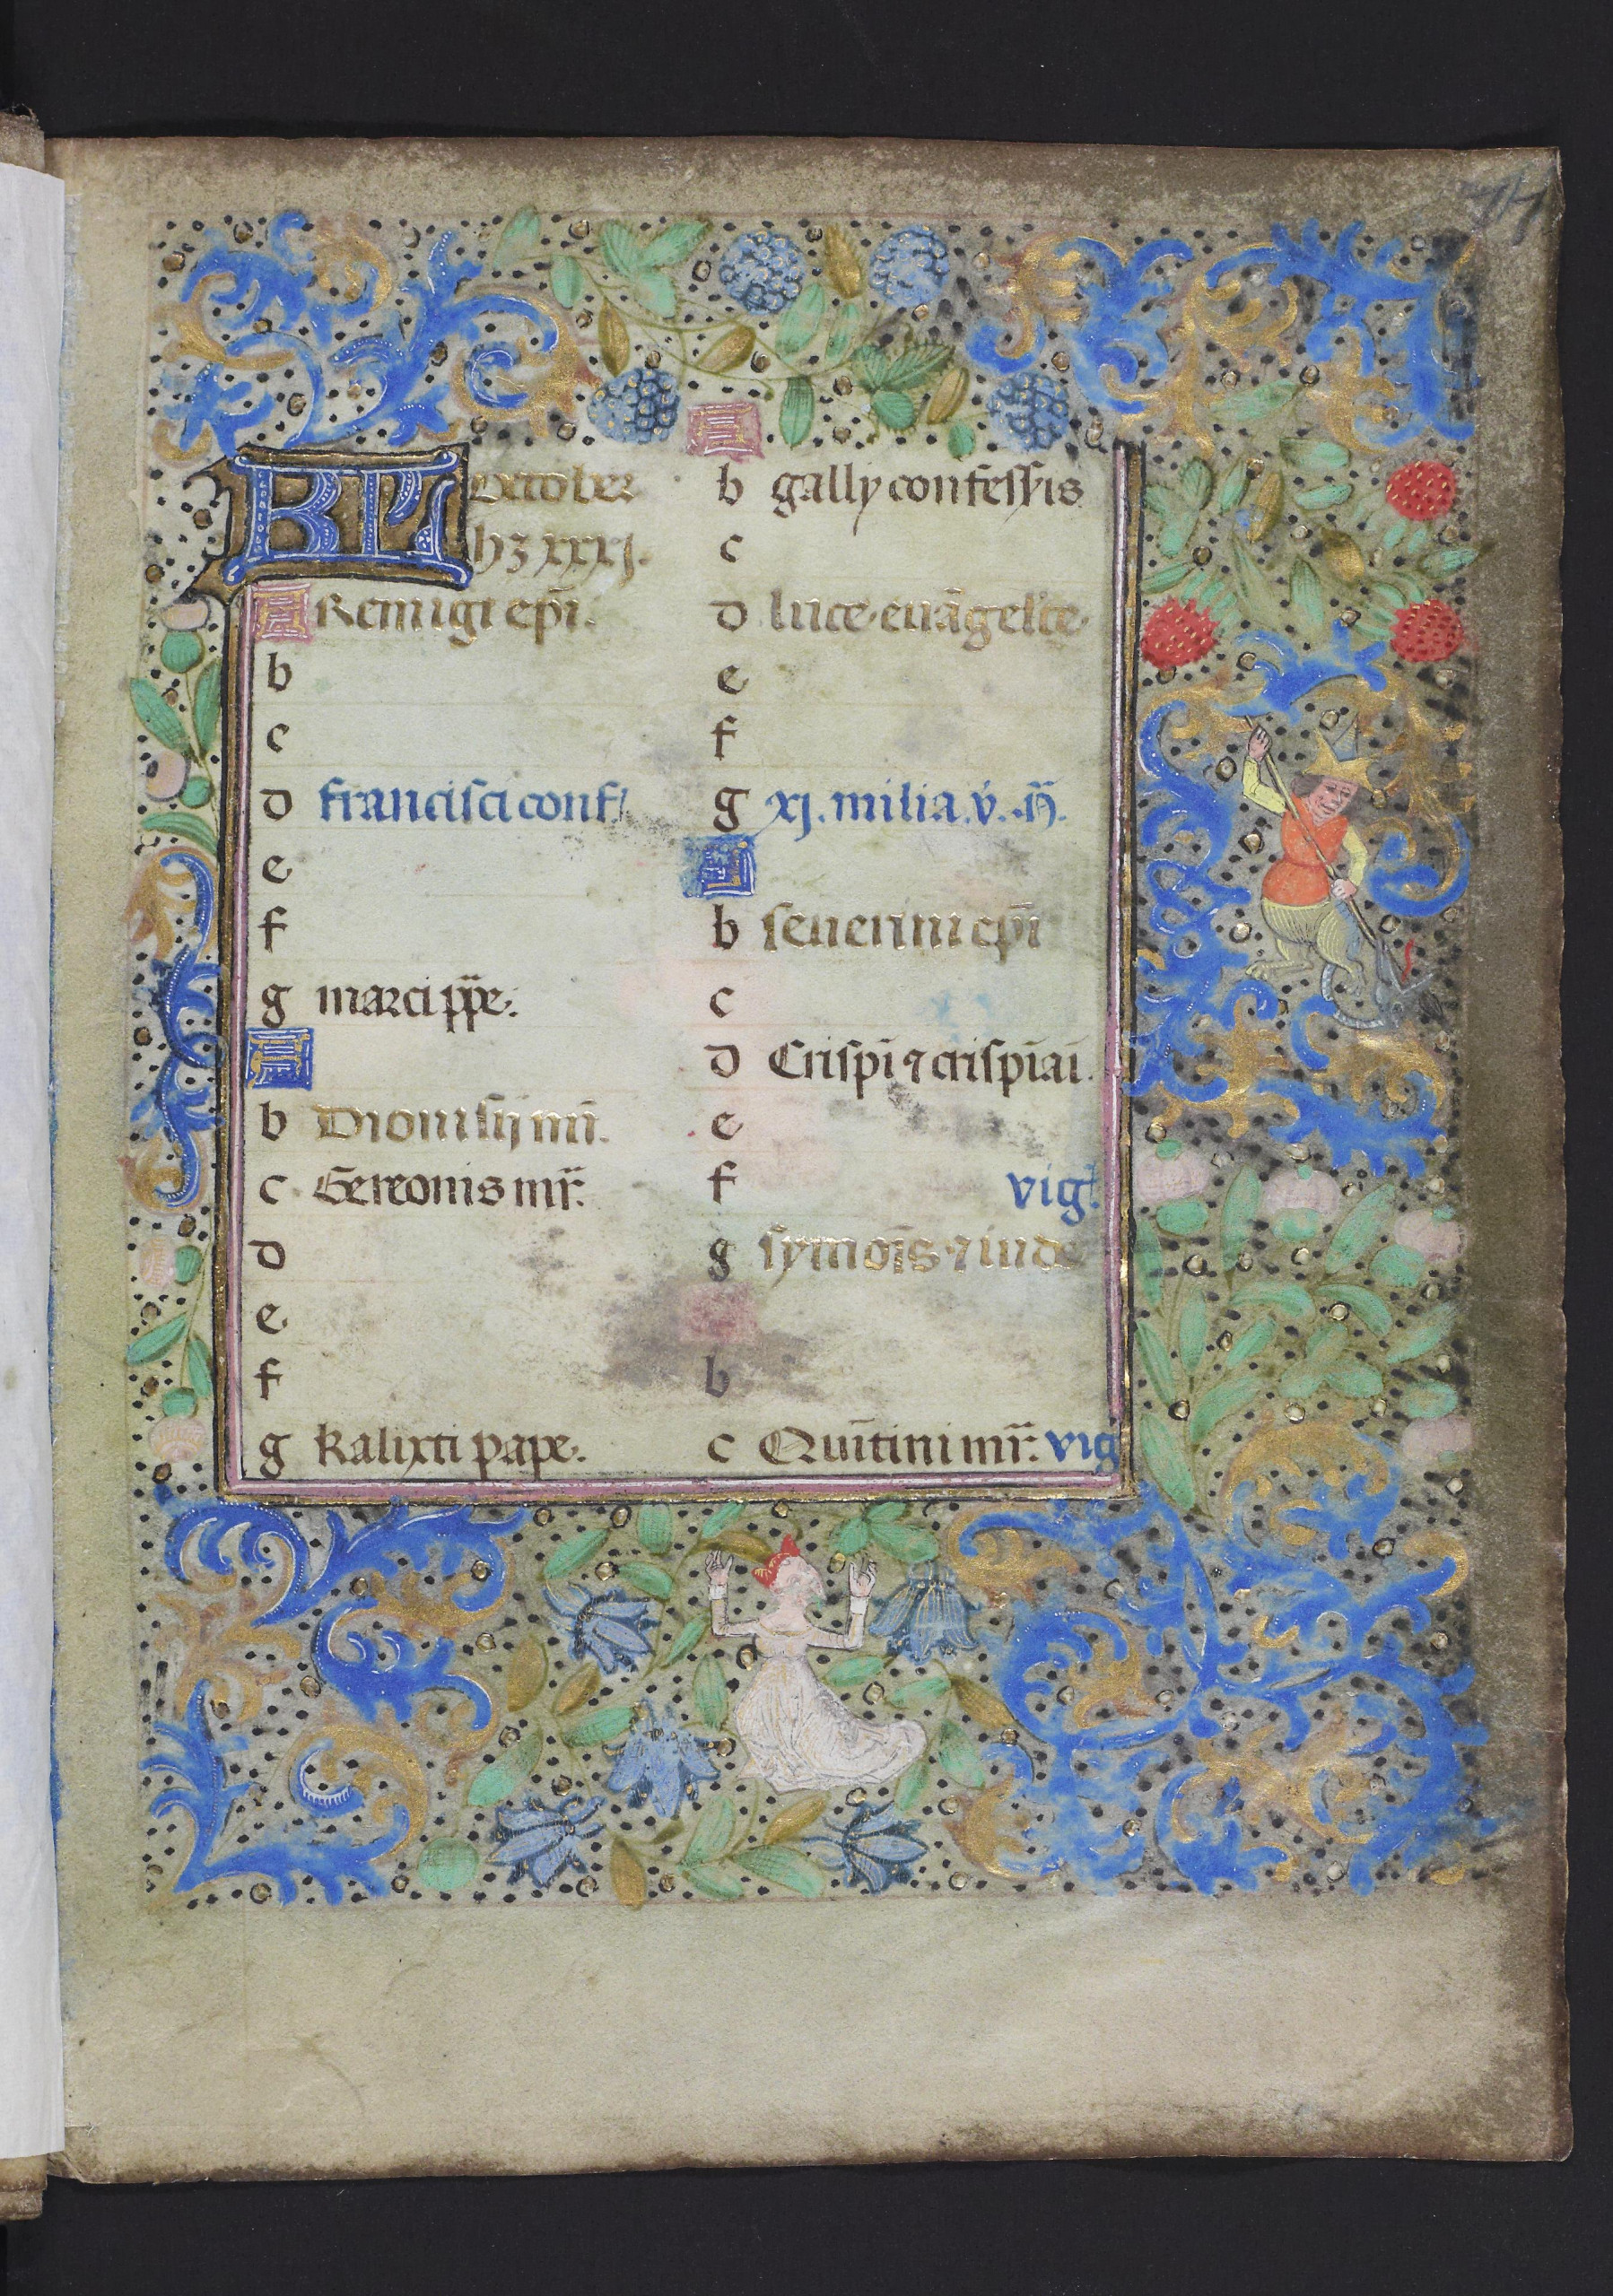 KL October
hȝ xxxj.
A Remigi ep̄i.
b
c
d francisci conf
e
f
g marci pp̄e.
A
b Dionisij mr̄.
c Gereonis mr̄.
d
e
f
g kalixti pape.
A
b gally confessyis
c
d luce euāgelīte
e
f
g xj. milia. v̄.
A
b seuerini ep̄i
c
d Crispī ⁊ crispīai.
e
f vigl.
g symōis ⁊ iude
b
c Quītini mr̄. vig